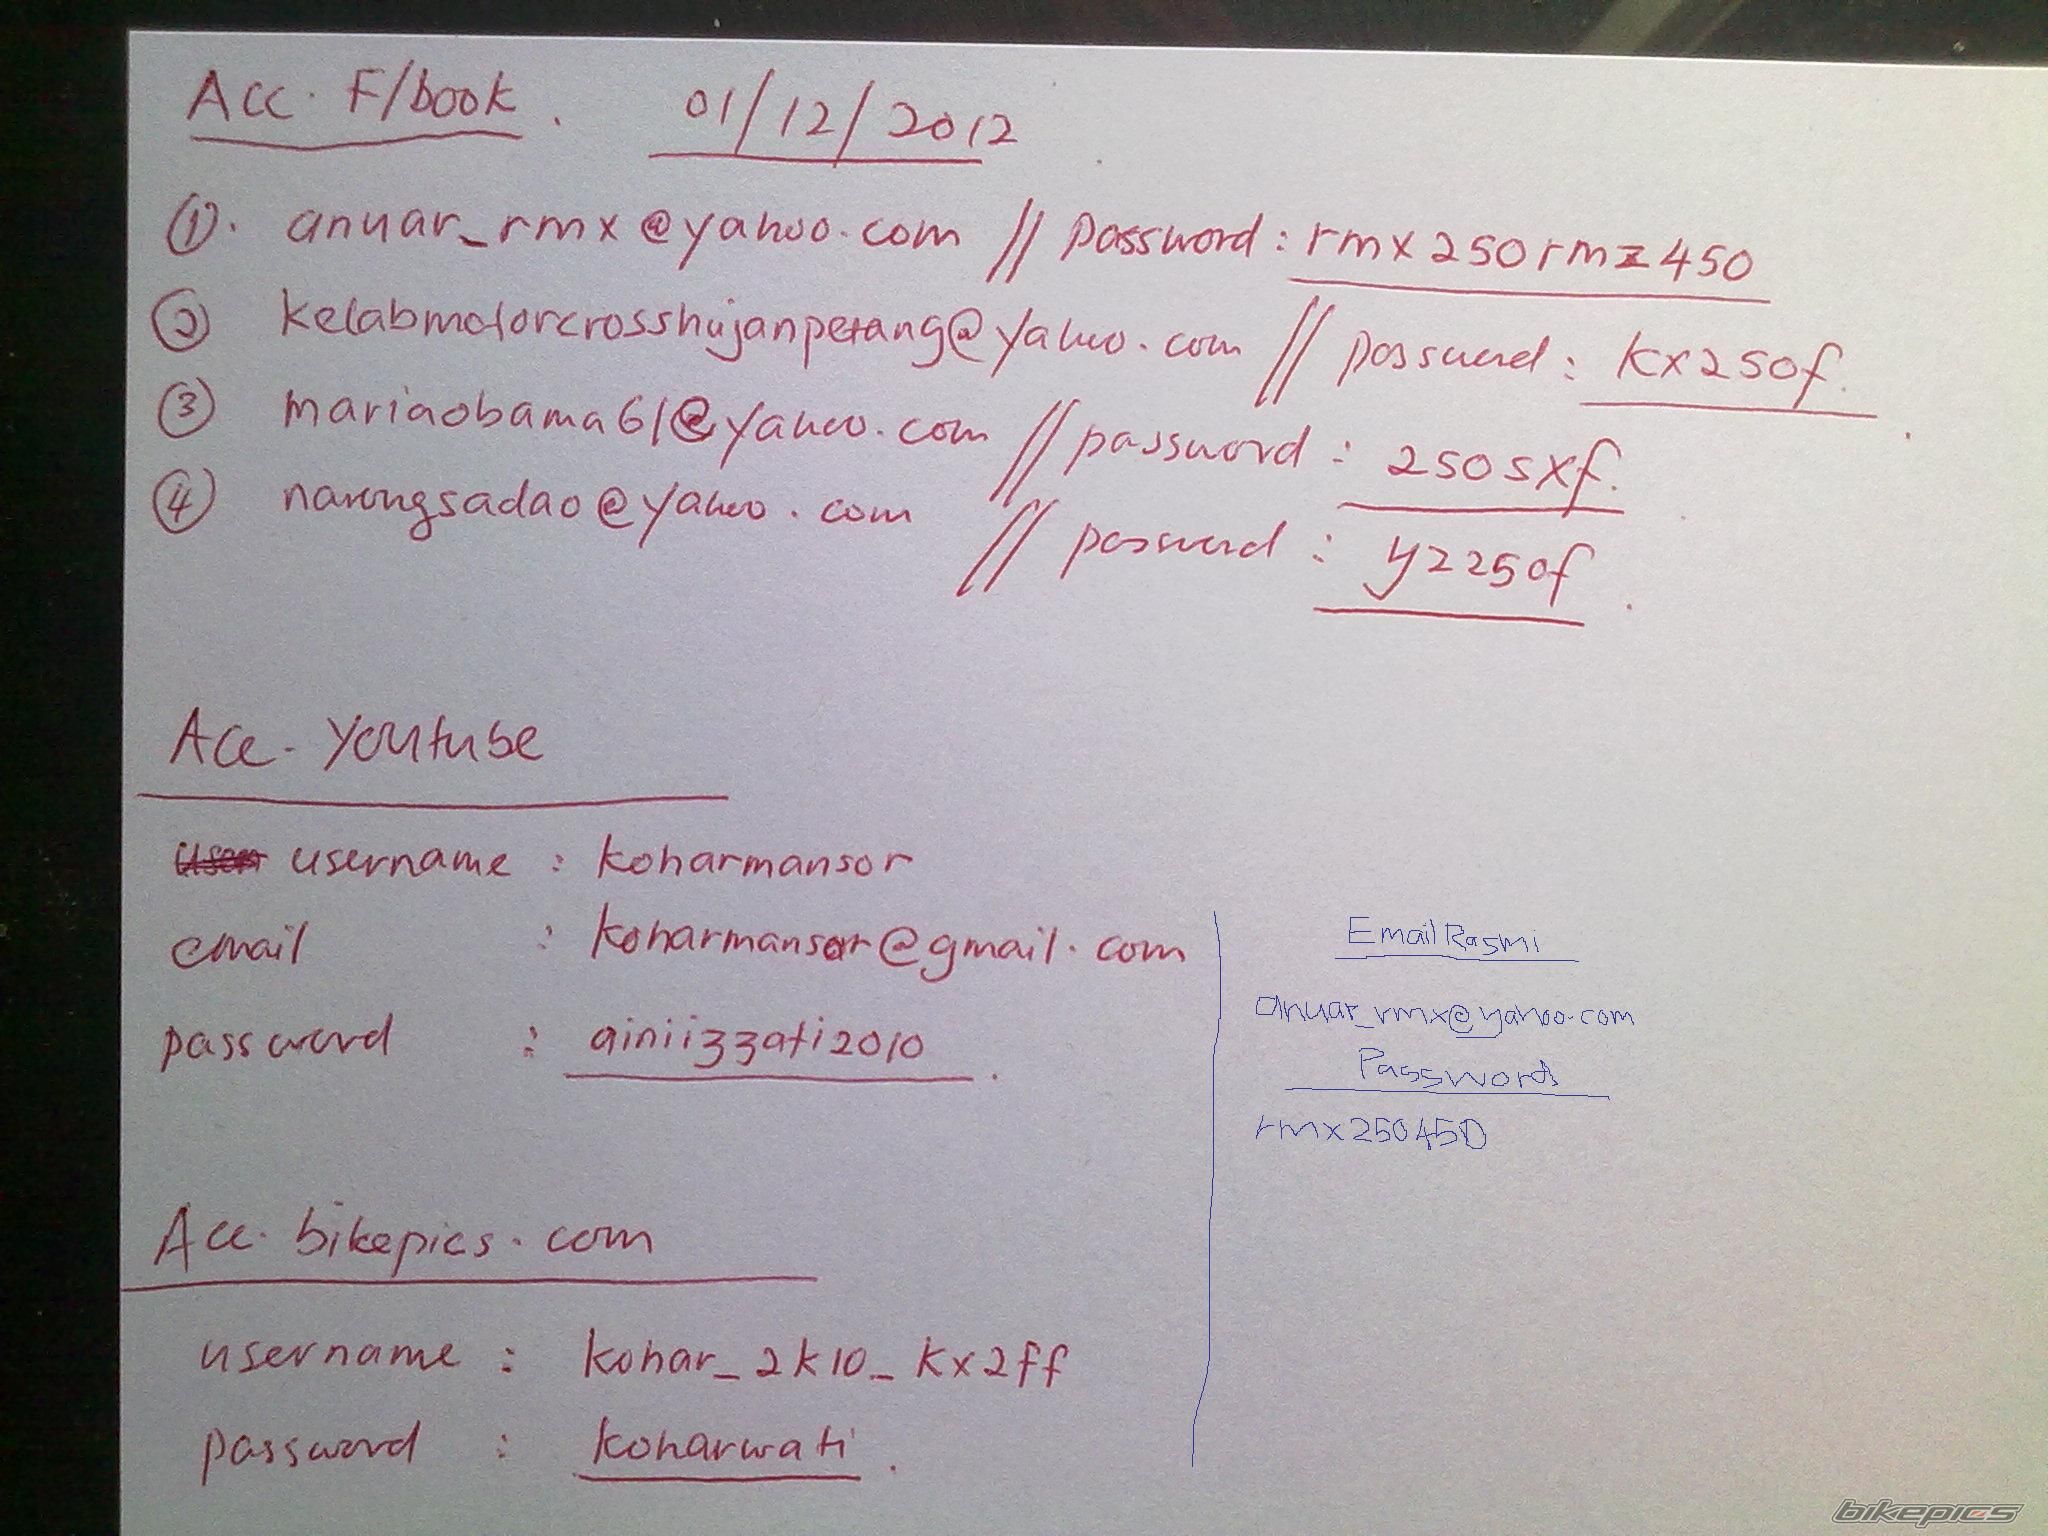 Acc. F/book. 01/12/2012
①. anuar_rmx@yahoo.com // password: rmx250rmz450
② kelabmotorcrosshujanpetang@yahoo.com // password: kx250f.
③ mariaobama61@yahoo.com // password: 250sxf.
④ narongsadao@yahoo.com // password: yz250f.
Acc. Youtube
username : koharmansor
email : koharmansor@gmail.com
password : ainiizzati2010.
Email Rasmi
anuar_rmx@yahoo.com
Password
rmx250450
Acc. bikepics.com
username : kohar_2k10_kx2ff
password : koharwati.
bikepics